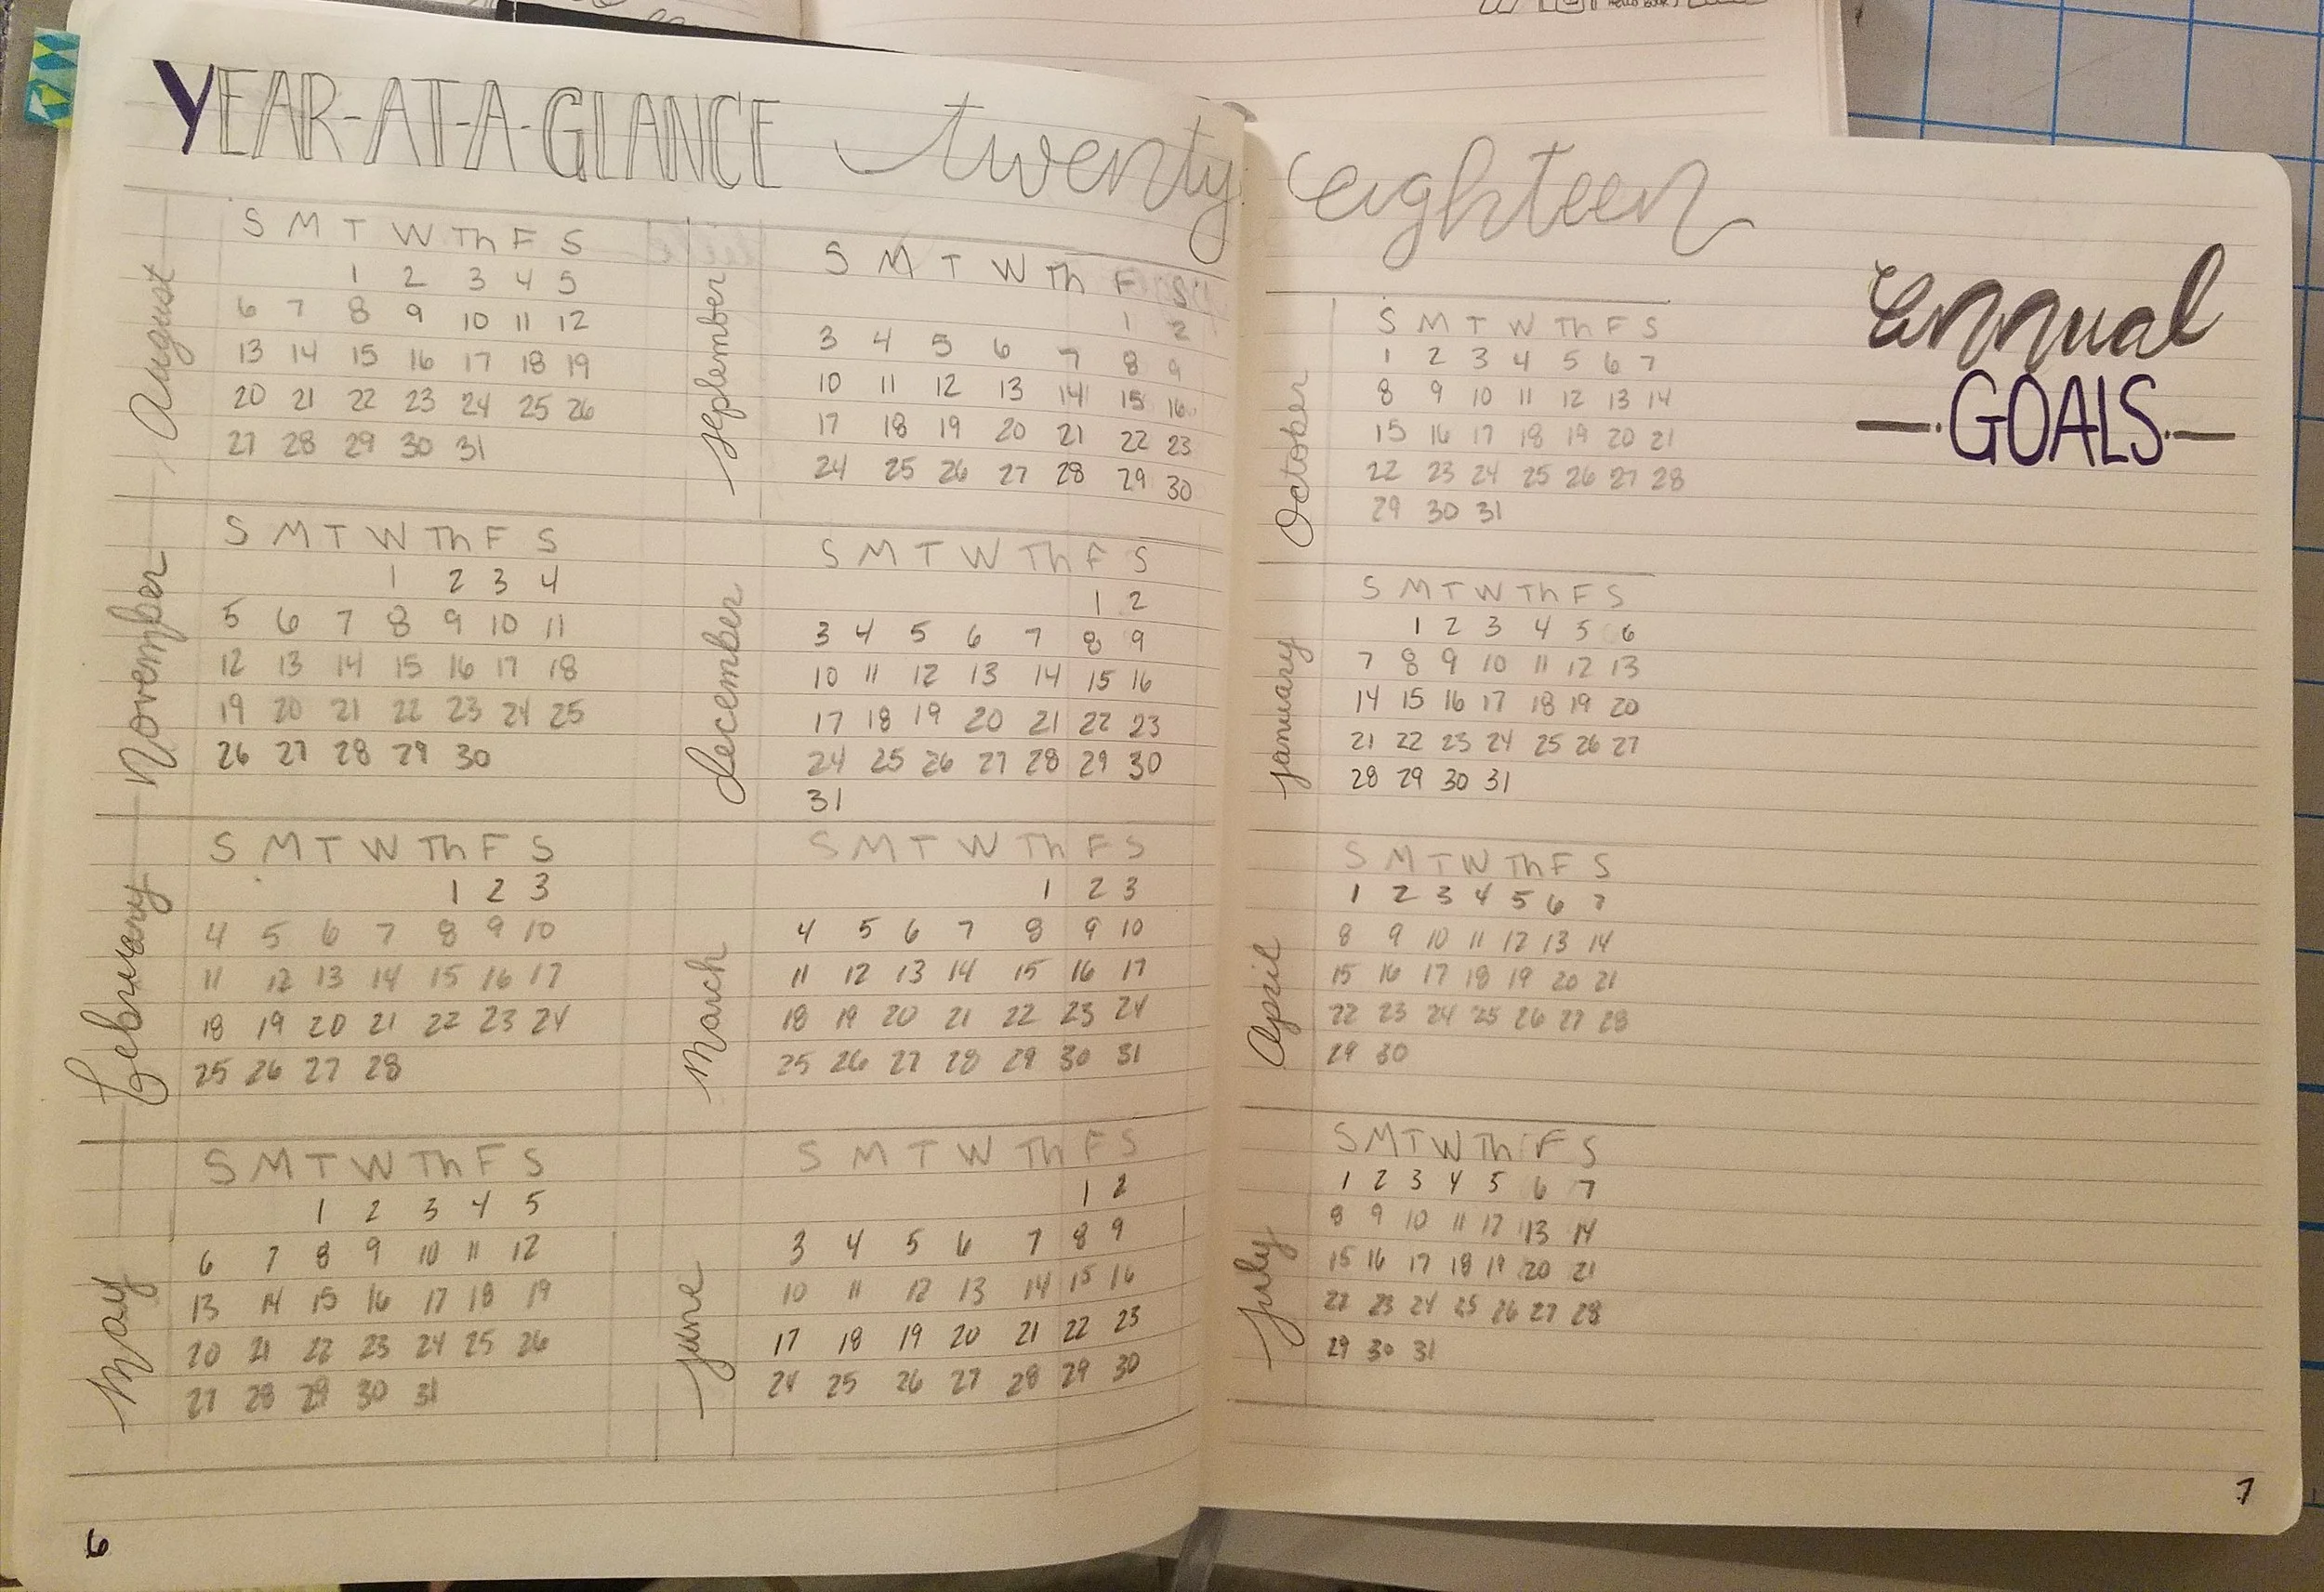 YEAR-AT-A-GLANCE twenty eighteen
August
S M T W Th F S
1 2 3 4 5
6 7 8 9 10 11 12
13 14 15 16 17 18 19
20 21 22 23 24 25 26
27 28 29 30 31
September
S M T W Th F S
1 2
3 4 5 6 7 8 9
10 11 12 13 14 15 16
17 18 19 20 21 22 23
24 25 26 27 28 29 30
November
S M T W Th F S
1 2 3 4
5 6 7 8 9 10 11
12 13 14 15 16 17 18
19 20 21 22 23 24 25
26 27 28 29 30
December
S M T W Th F S
1 2
3 4 5 6 7 8 9
10 11 12 13 14 15 16
17 18 19 20 21 22 23
24 25 26 27 28 29 30
31
February
S M T W Th F S
1 2 3
4 5 6 7 8 9 10
11 12 13 14 15 16 17
18 19 20 21 22 23 24
25 26 27 28
March
S M T W Th F S
1 2 3
4 5 6 7 8 9 10
11 12 13 14 15 16 17
18 19 20 21 22 23 24
25 26 27 28 29 30 31
May
S M T W Th F S
1 2 3 4 5
6 7 8 9 10 11 12
13 14 15 16 17 18 19
20 21 22 23 24 25 26
27 28 29 30 31
June
S M T W Th F S
1 2
3 4 5 6 7 8 9
10 11 12 13 14 15 16
17 18 19 20 21 22 23
24 25 26 27 28 29 30
6
October
S M T W Th F S
1 2 3 4 5 6 7
8 9 10 11 12 13 14
15 16 17 18 19 20 21
22 23 24 25 26 27 28
29 30 31
January
S M T W Th F S
1 2 3 4 5 6
7 8 9 10 11 12 13
14 15 16 17 18 19 20
21 22 23 24 25 26 27
28 29 30 31
April
S M T W Th F S
1 2 3 4 5 6 7
8 9 10 11 12 13 14
15 16 17 18 19 20 21
22 23 24 25 26 27 28
29 30
July
S M T W Th F S
1 2 3 4 5 6 7
8 9 10 11 12 13 14
15 16 17 18 19 20 21
22 23 24 25 26 27 28
29 30 31
Annual
—·GOALS·—
7